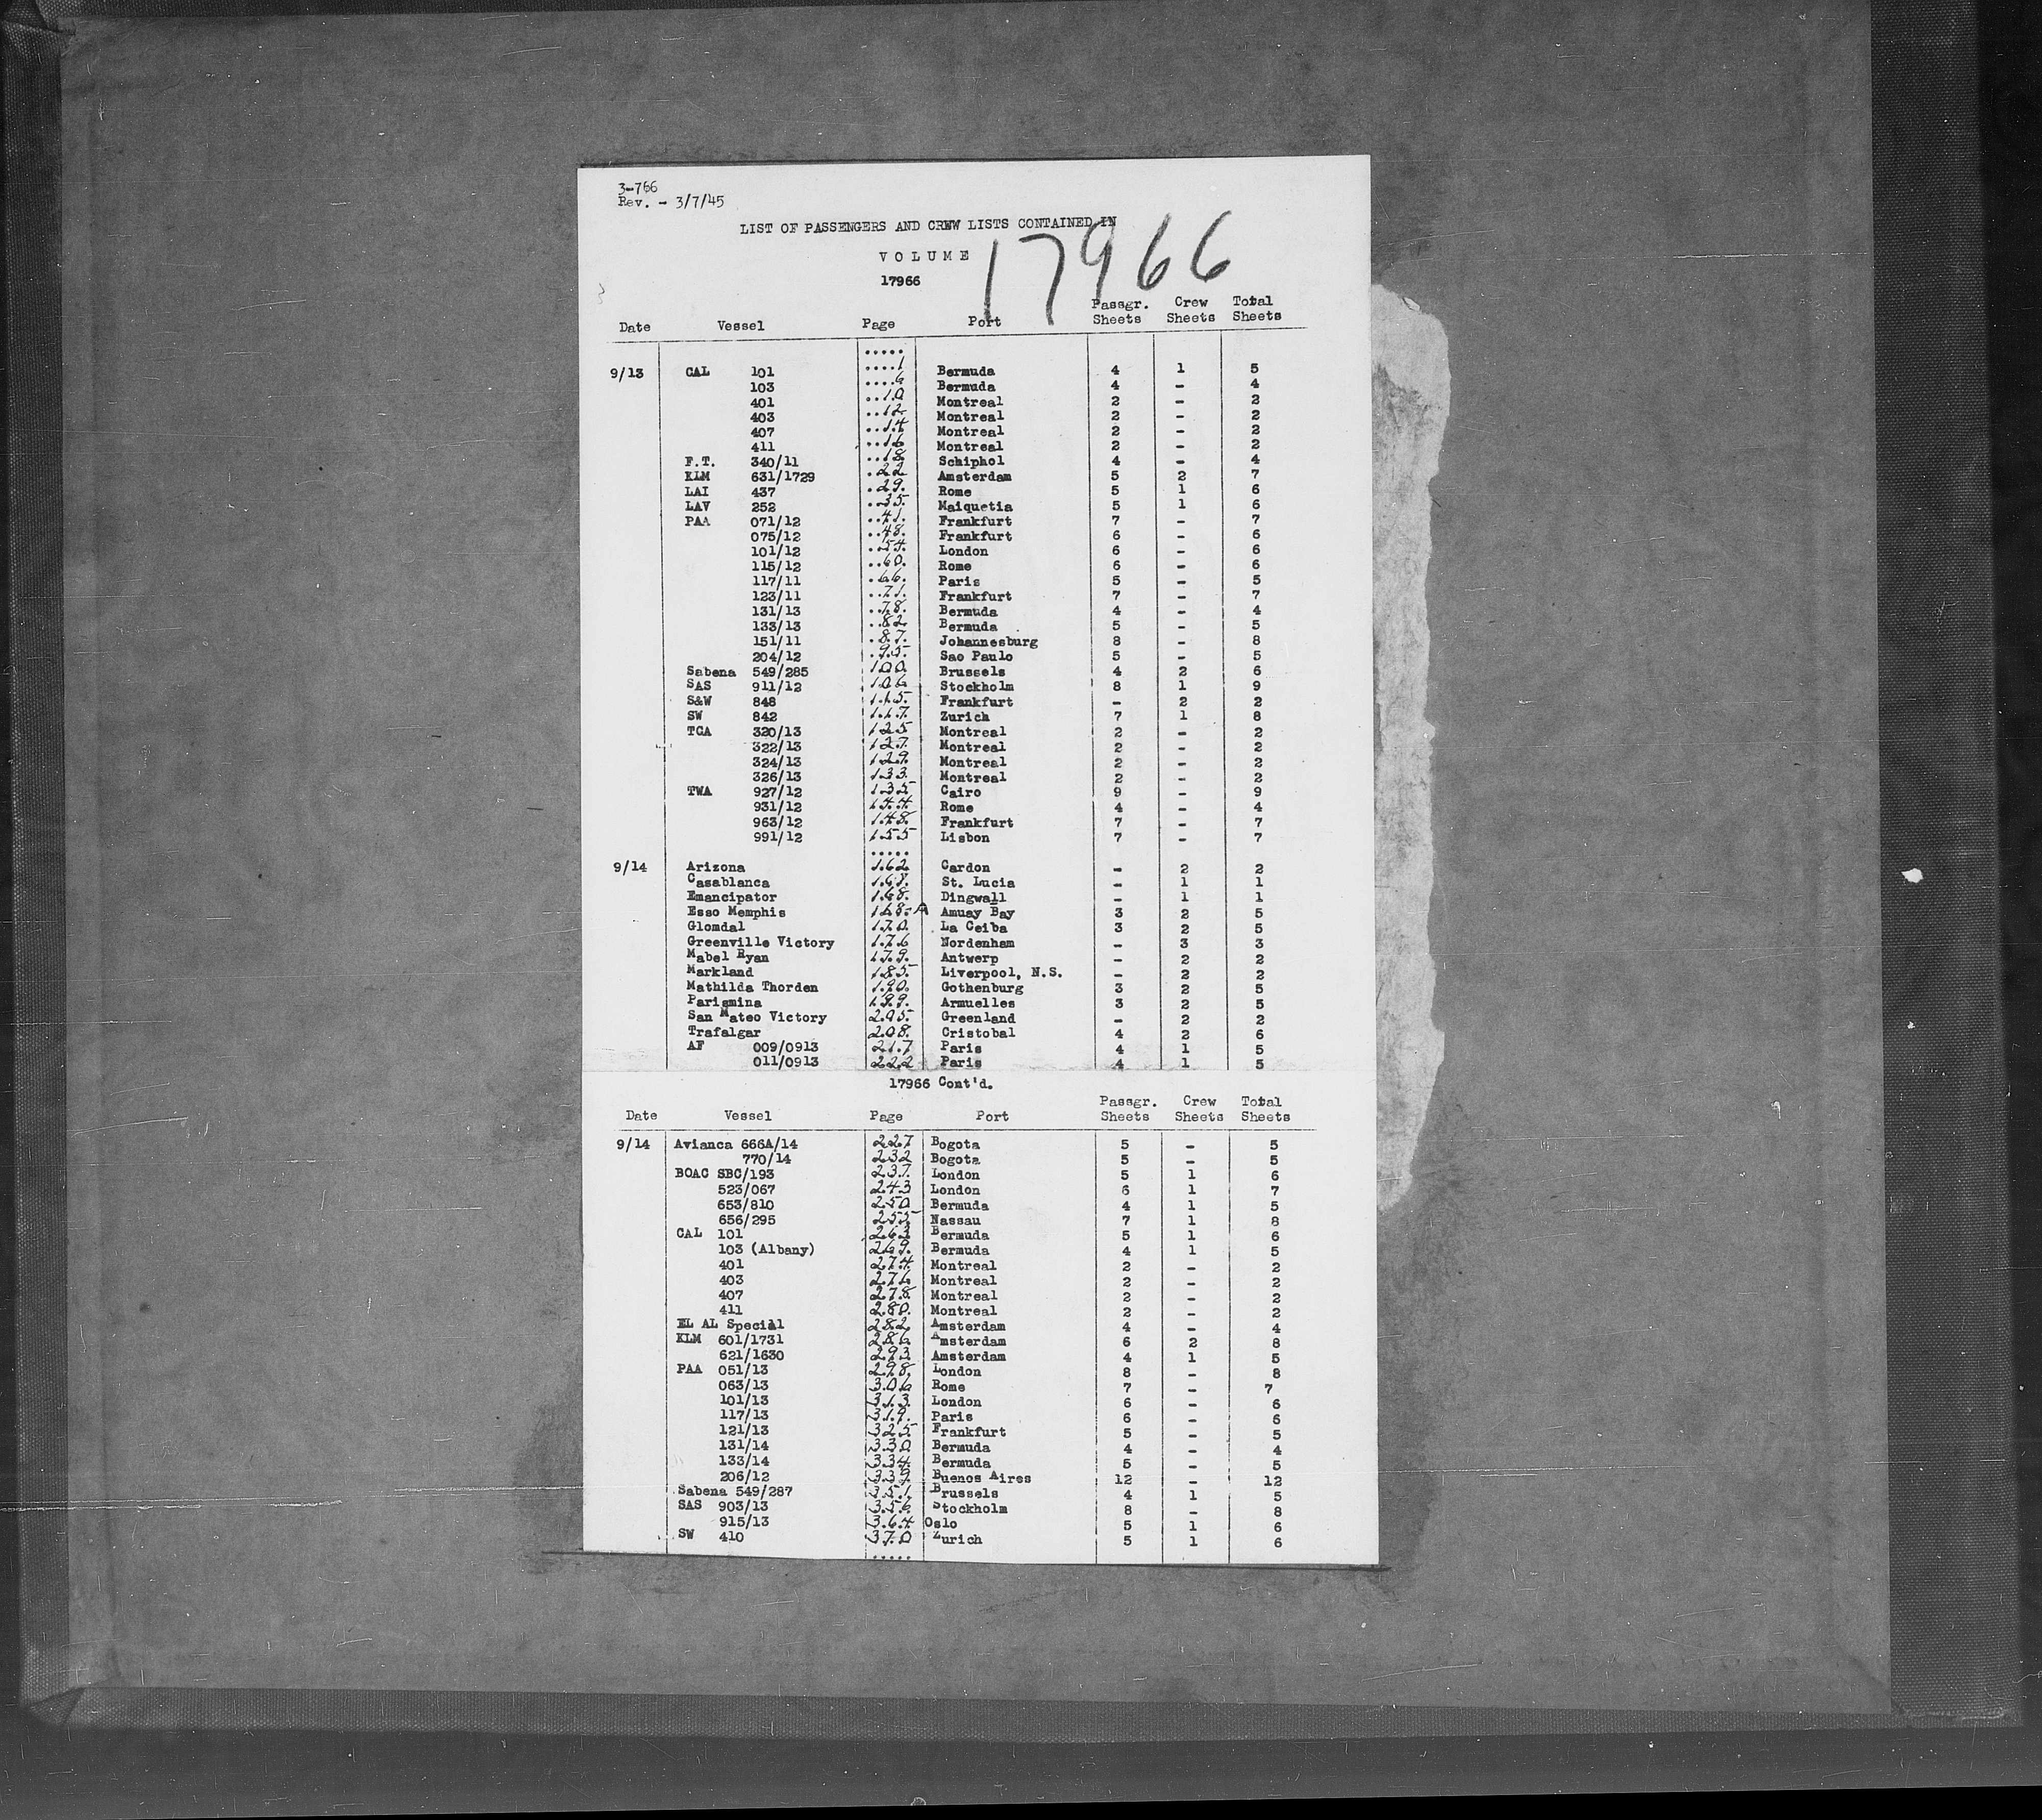 3-766
Rev. - 3/7/45
LIST OF PASSENGERS AND CREW LISTS CONTAINED IN
VOLUME 17966
17966
Date Vessel Page Port Passgr. Sheets Crew Sheets Total Sheets
.....
9/13 CAL 101 ....1 Bermuda 4 1 5
103 ....6 Bermuda 4 - 4
401 ..10 Montreal 2 - 2
403 ..12 Montreal 2 - 2
407 ..14 Montreal 2 - 2
411 ..16 Montreal 2 - 2
F.T. 340/11 ..18. Schiphol 4 - 4
KLM 631/1729 .22 Amsterdam 5 2 7
LAI 437 .29. Rome 5 1 6
LAV 252 .35. Maiquetia 5 1 6
PAA 071/12 ..41. Frankfurt 7 - 7
075/12 ..48. Frankfurt 6 - 6
101/12 ..54. London 6 - 6
115/12 ..60. Rome 6 - 6
117/11 .66. Paris 5 - 5
123/11 ..71. Frankfurt 7 - 7
131/13 ..78. Bermuda 4 - 4
133/13 ..82. Bermuda 5 - 5
151/11 .87. Johannesburg 8 - 8
204/12 .95. Sao Paulo 5 - 5
Sabena 549/285 100. Brussels 4 2 6
SAS 911/12 106 Stockholm 8 1 9
S&W 848 115. Frankfurt - 2 2
SW 842 117. Zurich 7 1 8
TCA 320/13 125 Montreal 2 - 2
322/13 127. Montreal 2 - 2
324/13 129. Montreal 2 - 2
326/13 133. Montreal 2 - 2
TWA 927/12 135 Cairo 9 - 9
931/12 144. Rome 4 - 4
963/12 148. Frankfurt 7 - 7
991/12 155 Lisbon 7 - 7
.....
9/14 Arizona 162 Cardon - 2 2
Casablanca St. Lucia - 1 1
Emancipator 168. Dingwall - 1 1
Esso Memphis 168-A Amuay Bay 3 2 5
Glomdal 170. La Ceiba 3 2 5
Greenville Victory 176 Nordenham - 3 3
Mabel Ryan 179. Antwerp - 2 2
Markland 185. Liverpool, N.S. - 2 2
Mathilda Thorden 190. Gothenburg 3 2 5
Parismina 199. Armuelles 3 2 5
San Mateo Victory 205. Greenland - 2 2
Trafalgar 208. Cristobal 4 2 6
AF 009/0913 217 Paris 4 1 5
011/0913 222 Paris 4 1 5
17966 Cont'd.
Date Vessel Page Port Passgr. Sheets Crew Sheets Total Sheets
9/14 Avianca 666A/14 227 Bogota 5 - 5
770/14 232 Bogota 5 - 5
BOAC SBC/193 237. London 5 1 6
523/067 243 London 6 1 7
653/810 250 Bermuda 4 1 5
656/295 255 Nassau 7 1 8
CAL 101 263 Bermuda 5 1 6
103 (Albany) 269. Bermuda 4 1 5
401 274. Montreal 2 - 2
403 276. Montreal 2 - 2
407 278. Montreal 2 - 2
411 280. Montreal 2 - 2
EL AL Special 282. Amsterdam 4 - 4
KLM 601/1731 286. Amsterdam 6 2 8
621/1630 293. Amsterdam 4 1 5
PAA 051/13 298. London 8 - 8
063/13 306 Rome 7 - 7
101/13 313. London 6 - 6
117/13 319. Paris 6 - 6
121/13 325. Frankfurt 5 - 5
131/14 330 Bermuda 4 - 4
133/14 334. Bermuda 5 - 5
206/12 339. Buenos Aires 12 - 12
Sabena 549/287 351. Brussels 4 1 5
SAS 903/13 356. Stockholm 8 - 8
915/13 364 Oslo 5 1 6
SW 410 370 Zurich 5 1 6
.....